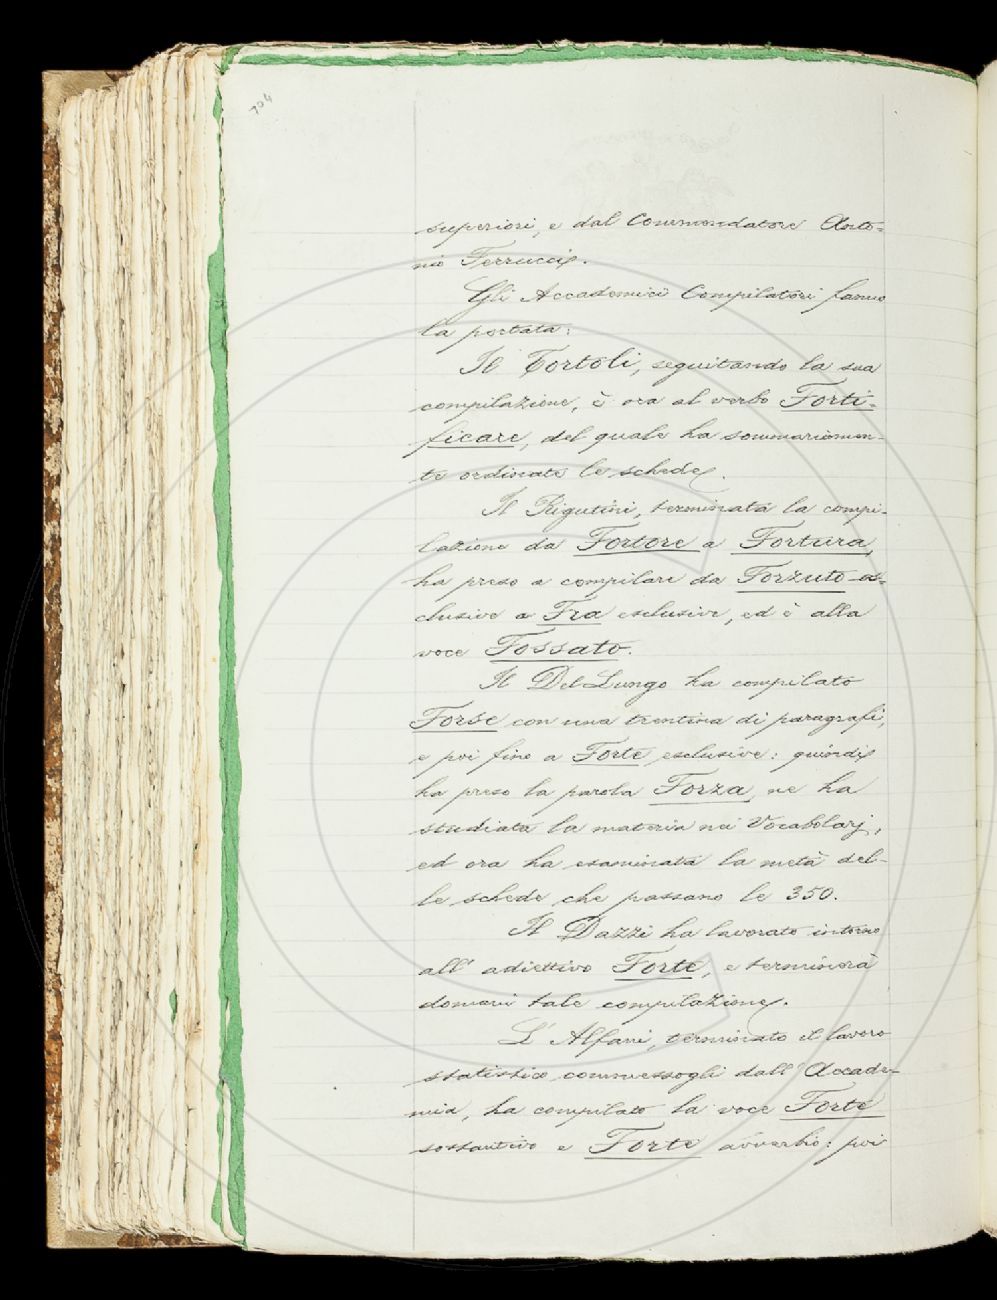 704
superiori, e dal Commendatore Anto=
nio Ferrucci.
Gli Accademici Compilatori fanno
la portata:
Il Tortoli, seguitando la sua
compilazione, è ora al verbo Forti=
ficare, del quale ha sommariamen-
te ordinate le schede.
Il Rigutini, terminata la compi-
lazione da Fortore a Fortura,
ha preso a compilare da Forzuto es-
clusive a Fra esclusive, ed è alla
voce Fossato.
Il Del Lungo ha compilato
Forse con una trentina di paragrafi,
e poi fino a Forte esclusive: quindi
ha preso la parola Forza, ne ha
studiata la materia nei Vocabolarj,
ed ora ha esaminata la metà del-
le schede che passano le 350.
Il Dazzi ha lavorato intorno
all' adiettivo Forte, e terminerà
domani tale compilazione.
L' Alfani, terminato il lavoro
statistico commessogli dall' Accade-
mia, ha compilato la voce Forte
sostantivo e Forte avverbio: poi